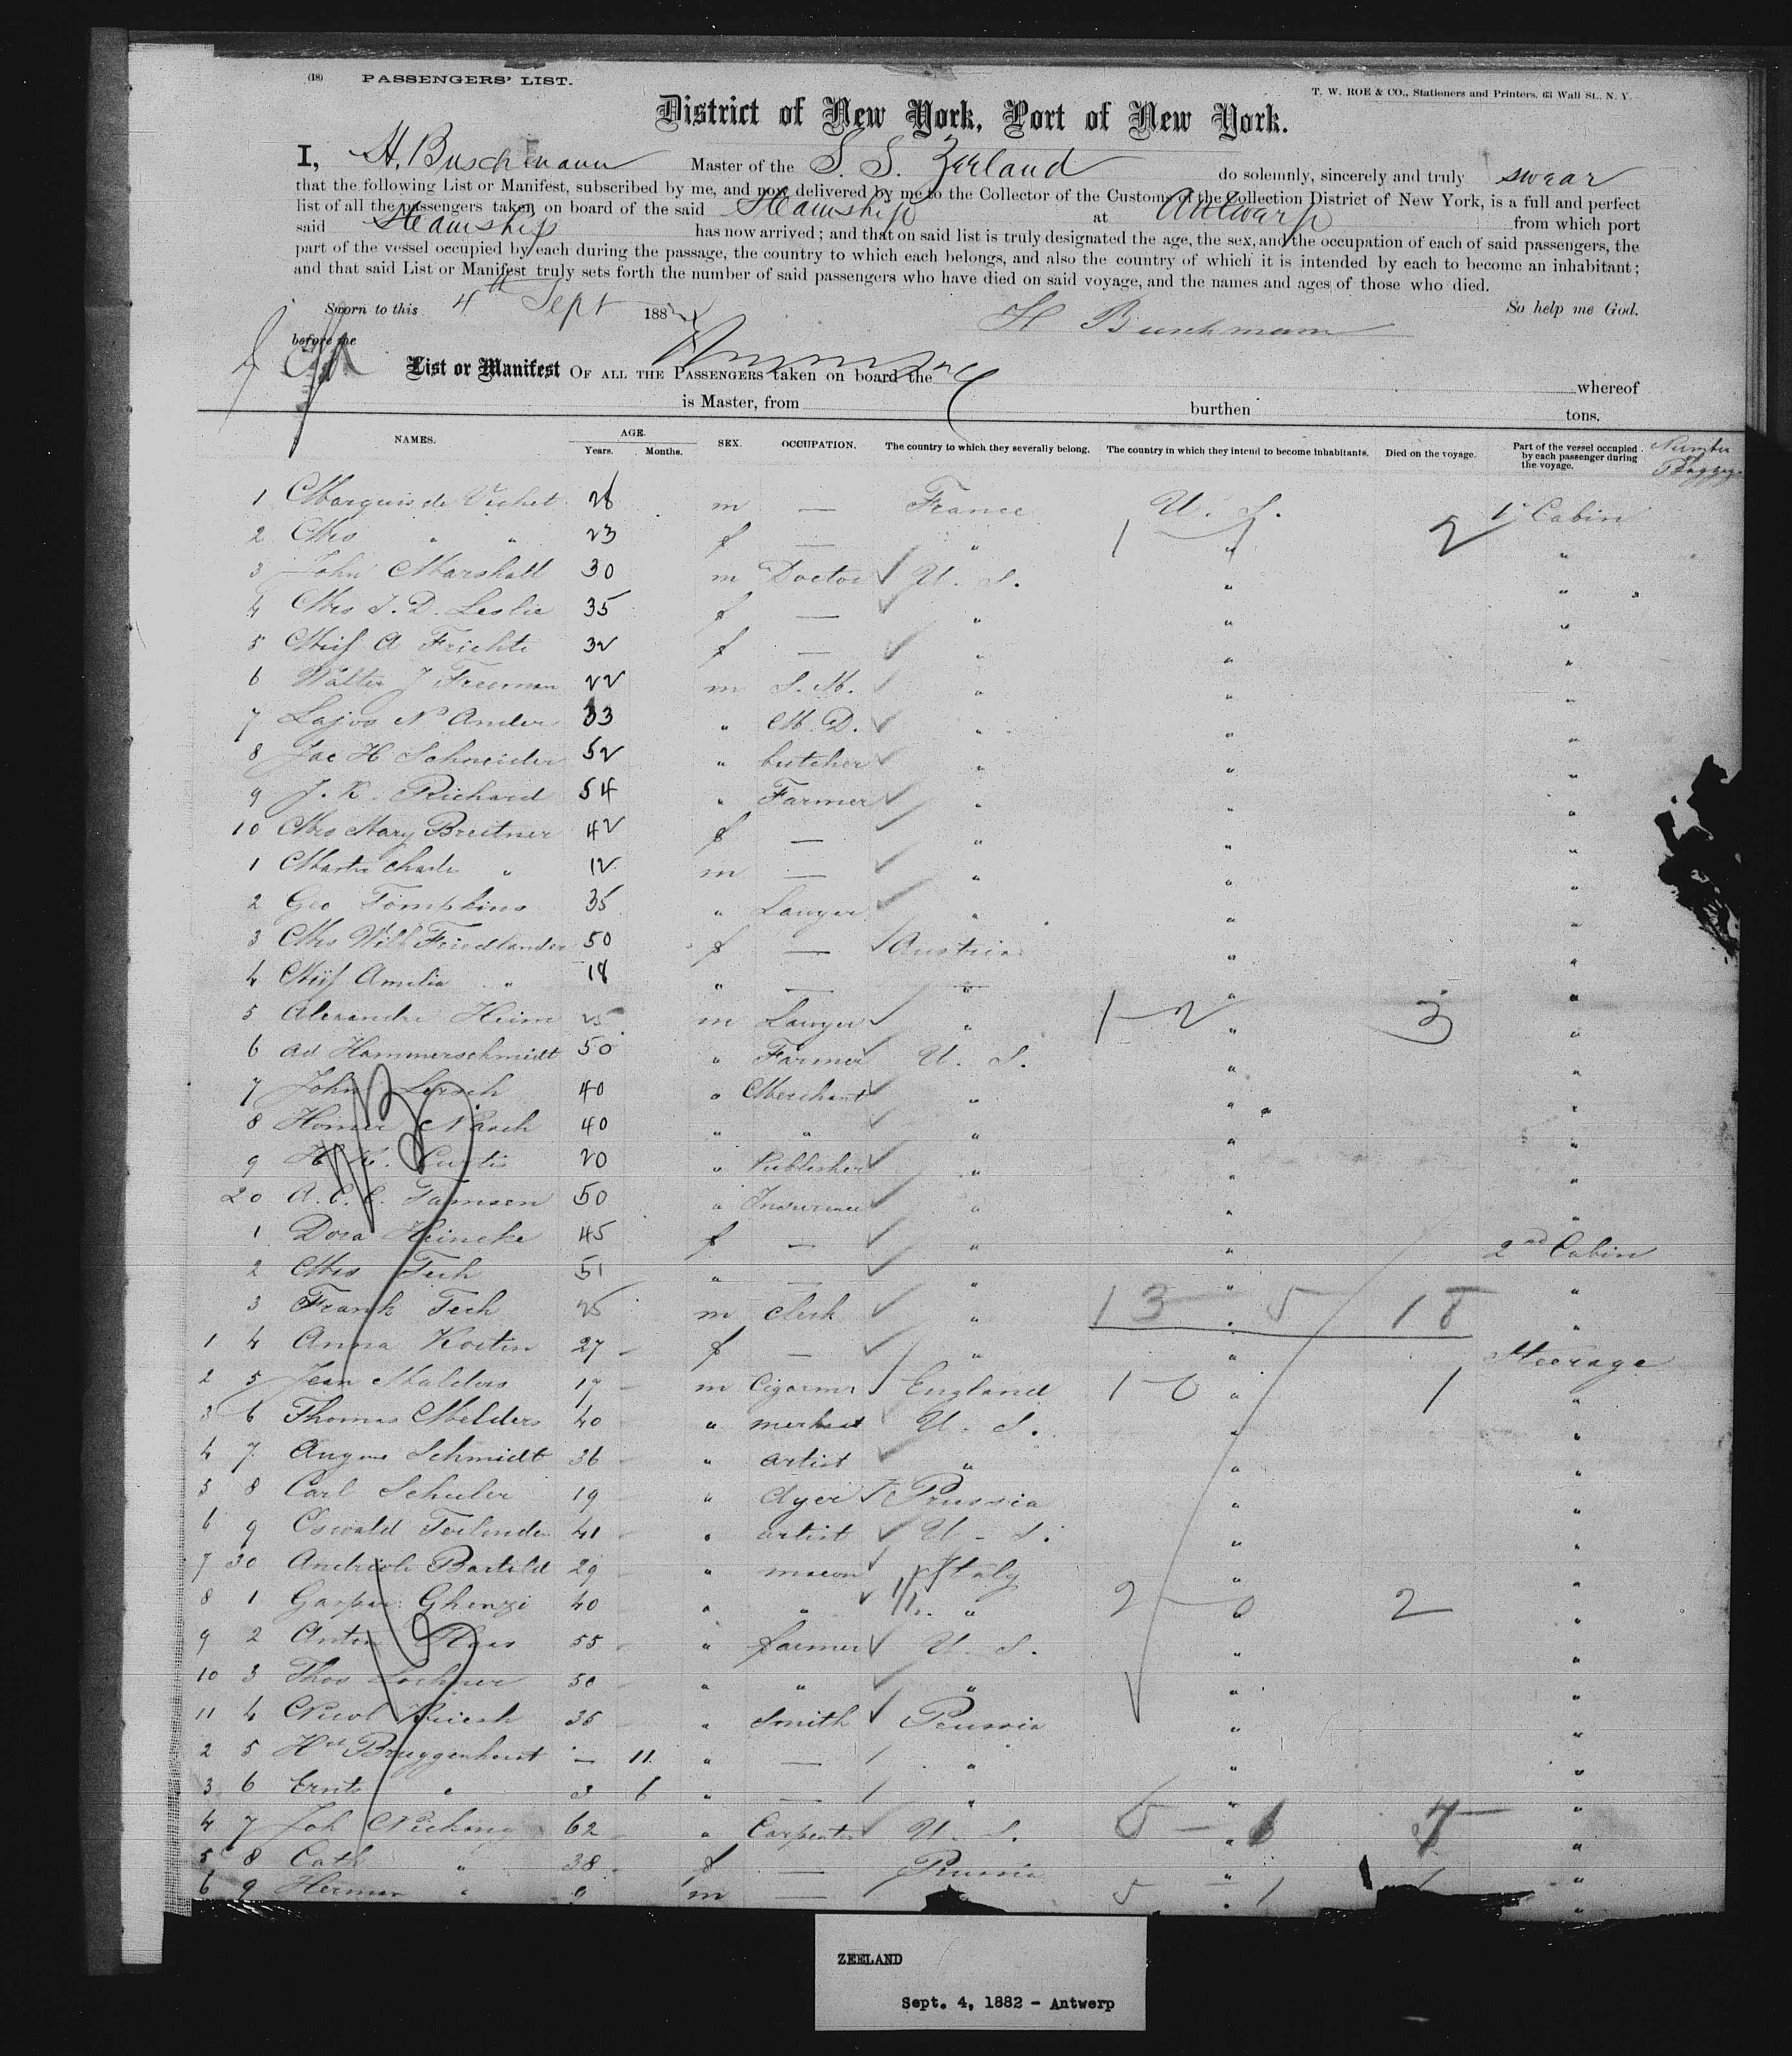 (18) PASSENGERS' LIST.
T. W. ROE & CO., Stationers and Printers, 63 Wall St., N. Y.
District of New York, Port of New York.
I, H. Buschmann Master of the S. S. Zeeland do solemnly, sincerely and truly swear
that the following List or Manifest, subscribed by me, and now delivered by me to the Collector of the Customs of the Collection District of New York, is a full and perfect
list of all the passengers taken on board of the said Steamship at Antwerp from which port
said Steamship has now arrived; and that on said list is truly designated the age, the sex, and the occupation of each of said passengers, the
part of the vessel occupied by each during the passage, the country to which each belongs, and also the country of which it is intended by each to become an inhabitant;
and that said List or Manifest truly sets forth the number of said passengers who have died on said voyage, and the names and ages of those who died.
Sworn to this 4th Sept 1882 So help me God.
H Buschmann
before me
List or Manifest OF ALL THE PASSENGERS taken on board the whereof
is Master, from burthen tons.
NAMES. AGE. Years. Months. SEX. OCCUPATION. The country to which they severally belong. The country in which they intend to become inhabitants. Died on the voyage. Part of the vessel occupied by each passenger during the voyage. Number Baggage
1 Marquis de 28 m — France U. S. 1st Cabin
2 Mrs " " 23 f — " 1 1 " 2 "
3 John Marshall 30 m Doctor U. S. " "
4 Mrs J. D. Leslie 35 f — " " "
5 Miss A 32 f — " " "
6 Walter J Freeman 22 m S. M. " " "
7 Lajos N Ander 33 " M. D. " " "
8 Jac H Schneider 52 " butcher " " "
9 J. K. Richard 54 " Farmer " " "
10 Mrs Mary Breitner 42 f — " " "
1 Master Charles " 12 m — " " "
2 Geo Tompkins 35 " Lawyer " " "
3 Mrs Wilh Friedlander 50 f — Austria " "
4 Miss Amelia " 18 " — " " "
5 Alexandre Heim 25 m Lawyer " 1-2 " 3 "
6 Ad Hammerschmidt 50 " Farmer U. S. " "
7 John Lersch 40 " Merchant " " "
8 Homer 40 " " " " "
9 H. Curtis 20 " Publisher " " "
20 A. C. C. Tamsen 50 " Insurance " " "
1 Dora Heincke 45 f — " " 2nd Cabin
2 Mrs Tech 51 " — " " "
3 Frank Tech 25 m Clerk " 13 " 5 18 "
1 4 Anna Kosten 27 f — " " Steerage
2 5 Jean Mulders 17 m Cigarmr England 1-0 " 1 "
3 6 Thomas Melders 40 " merchant U. S. " "
4 7 August Schmidt 36 " artist " " "
5 8 Carl Schuler 19 " dyer Prussia " "
6 9 Oswald 41 " artist U. S. " "
7 30 29 " mason Italy " "
8 1 Gaspar Ghenzi 40 " " " 2 0 " 2 "
9 2 Anton 55 " farmer U. S. " "
10 3 Thos Lochner 50 " " " " "
11 4 35 " Smith Prussia " "
2 5 Bruggenhorst — 11 " — " " "
3 6 " 3 6 " — " " "
4 7 Joh 62 " Carpenter U. S. 5-1 "
5 8 Cath " 38 f — Prussia " "
6 9 Herman " 9 m — 5 1 "
ZEELAND
Sept. 4, 1882 - Antwerp